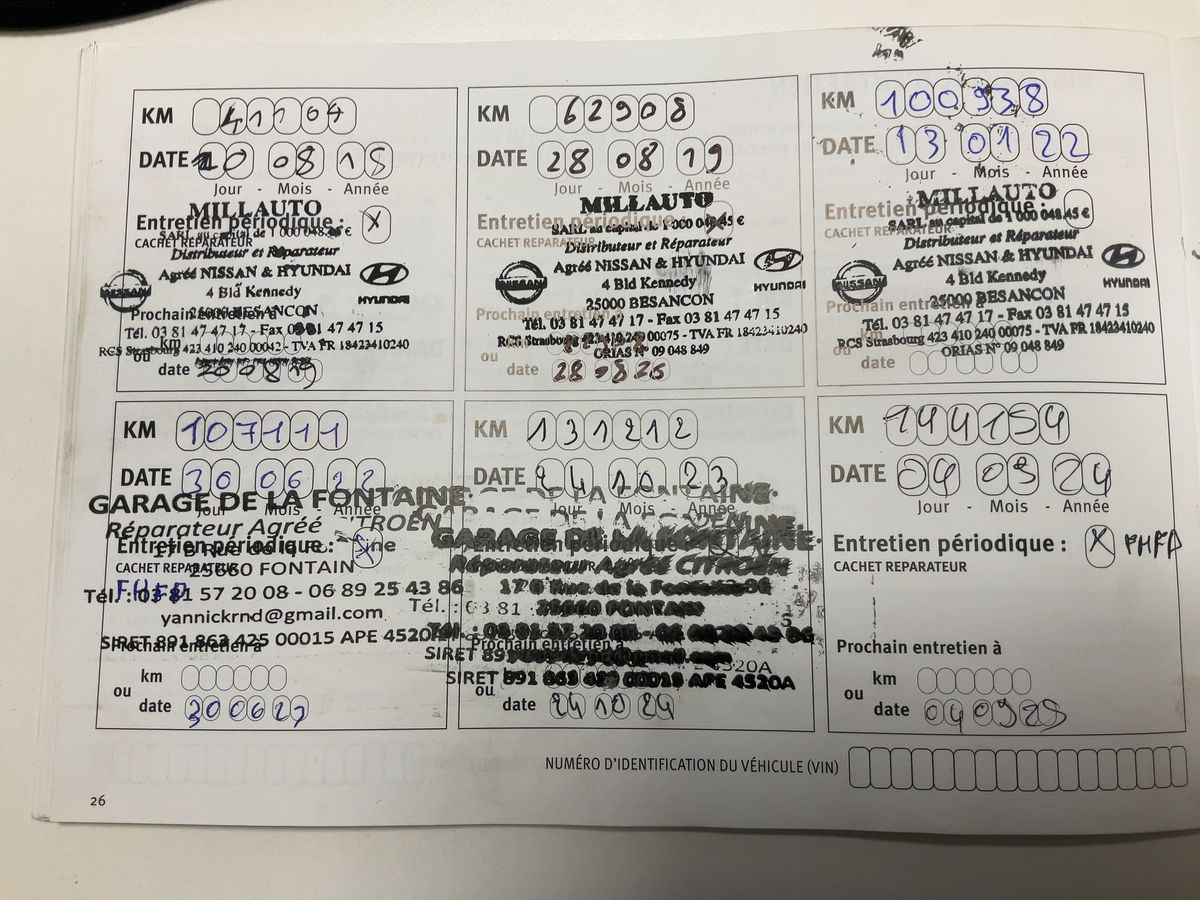 KM 41104
DATE 20 08 18
Jour - Mois - Année
MILLAUTO
Entretien périodique : X
SARL au capital de 1 000 048.45 €
CACHET REPARATEUR
Distributeur et Réparateur
Agréé NISSAN & HYUNDAI
NISSAN
4 Bld Kennedy
HYUNDAI
25000 BESANCON
Prochain entretien à
Tél. 03 81 47 47 17 - Fax 03 81 47 47 15
km
RCS Strasbourg 423 410 240 00042 - TVA FR 18423410240
ou
date 200819
KM 62908
DATE 28 08 19
Jour - Mois - Année
MILLAUTO
Entretien périodique : X
SARL au capital de 1 000 048.45 €
CACHET REPARATEUR
Distributeur et Réparateur
Agréé NISSAN & HYUNDAI
NISSAN
4 Bld Kennedy
HYUNDAI
25000 BESANCON
Prochain entretien à
Tél. 03 81 47 47 17 - Fax 03 81 47 47 15
RCS Strasbourg 423 410 240 00075 - TVA FR 18423410240
ou
ORIAS N° 09 048 849
date
KM 100938
DATE 13 01 22
Jour - Mois - Année
MILLAUTO
Entretien périodique :
SARL au capital de 1 000 048.45 €
CACHET REPARATEUR
Distributeur et Réparateur
Agréé NISSAN & HYUNDAI
NISSAN
4 Bld Kennedy
HYUNDAI
25000 BESANCON
Prochain entretien à
Tél. 03 81 47 47 17 - Fax 03 81 47 47 15
km
RCS Strasbourg 423 410 240 00075 - TVA FR 18423410240
ou
ORIAS N° 09 048 849
date
KM 107111
DATE 30 06 22
GARAGE DE LA FONTAINE
Jour - Mois - Année
Réparateur Agréé CITROËN
Entretien périodique : X
CACHET REPARATEUR
25660 FONTAIN
FHFP
Tél. : 03 81 57 20 08 - 06 89 25 43 86
yannickrnd@gmail.com
SIRET 891 863 425 00015 APE 4520A
Prochain entretien à
km
ou
date 300623
KM 131212
DATE 24 10 23
GARAGE DE LA FONTAINE
Réparateur Agréé CITROËN
25660 FONTAIN
Tél. : 03 81
Prochain entretien à
APE 4520A
ou
date 241024
KM 144154
DATE 04 09 24
Jour - Mois - Année
Entretien périodique : X FHFP
CACHET REPARATEUR
Prochain entretien à
km
ou
date 040925
NUMÉRO D'IDENTIFICATION DU VÉHICULE (VIN)
26